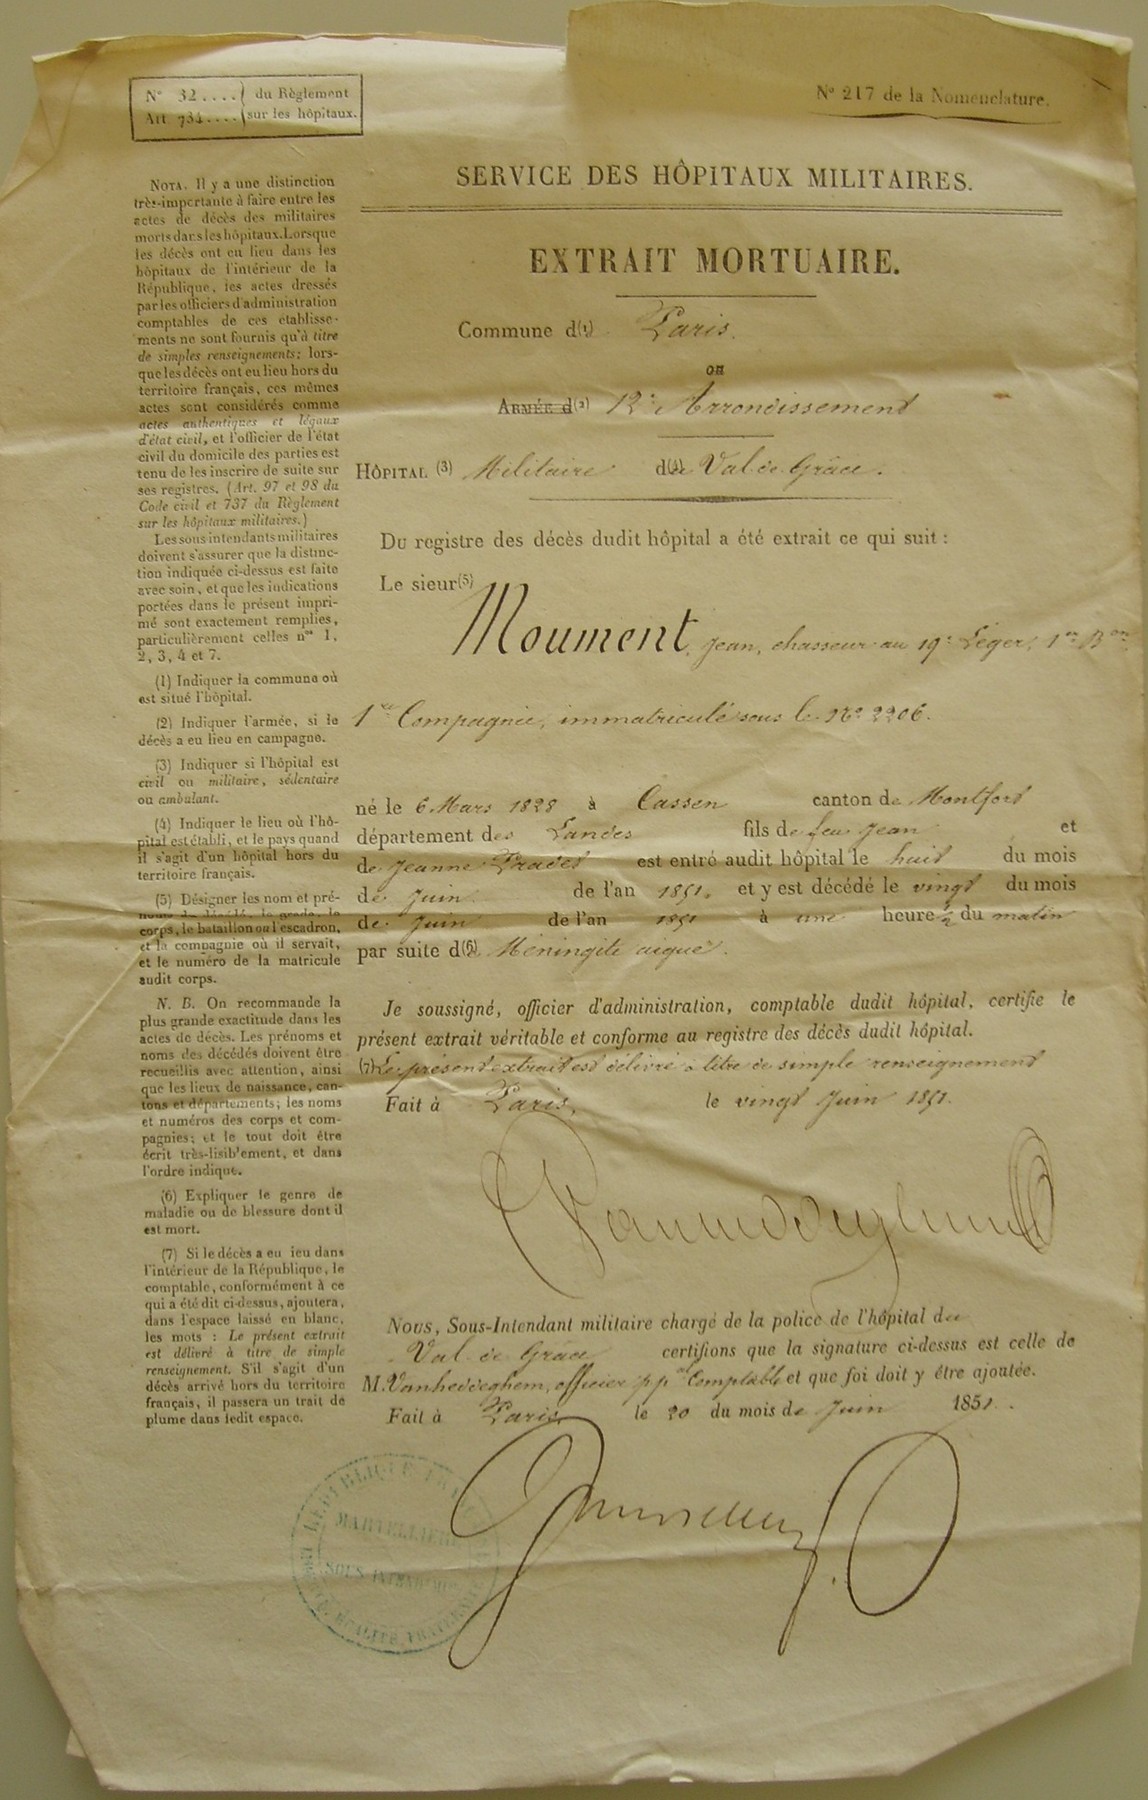 N° 32.... du Règlement
Art. 734.... sur les hôpitaux.
N° 217 de la Nomenclature.
SERVICE DES HÔPITAUX MILITAIRES.
EXTRAIT MORTUAIRE.
Commune d(1) Paris.
ou
ARMÉE d(2) 12e Arrondissement
HÔPITAL (3) Militaire d(4)u Val de Grâce.
Du registre des décès dudit hôpital a été extrait ce qui suit :
Le sieur(5)
Moument, Jean, chasseur au 19e Léger, 1er Bon
1re Compagnie, immatriculé sous le No 2206.
né le 6 Mars 1828 à Cassen canton de Montfort
département des Landes fils de feu Jean et
de Jeanne Prades est entré audit hôpital le huit du mois
de Juin de l'an 1851. et y est décédé le vingt du mois
de Juin de l'an 1851 à une heure ½ du matin
par suite d(6)e Méningite aigue.
Je soussigné, officier d'administration, comptable dudit hôpital, certifie le
présent extrait véritable et conforme au registre des décès dudit hôpital.
(7) Le présent extrait est délivré à titre de simple renseignement
Fait à Paris, le vingt Juin 1851.
Nous, Sous-Intendant militaire chargé de la police de l'hôpital du
Val de Grâce certifions que la signature ci-dessus est celle de
M. Vanheddeghem, officier ppal Comptable et que foi doit y être ajoutée.
Fait à Paris le 20 du mois de Juin 1851.
NOTA. Il y a une distinction
très-importante à faire entre les
actes de décès des militaires
morts dans les hôpitaux. Lorsque
les décès ont eu lieu dans les
hôpitaux de l'intérieur de la
République, les actes dressés
par les officiers d'administration
comptables de ces établisse-
ments ne sont fournis qu'à titre
de simples renseignements; lors-
que les décès ont eu lieu hors du
territoire français, ces mêmes
actes sont considérés comme
actes authentiques et légaux
d'état civil, et l'officier de l'état
civil du domicile des parties est
tenu de les inscrire de suite sur
ses registres. (Art. 97 et 98 du
Code civil et 737 du Règlement
sur les hôpitaux militaires.)
Les sous-intendants militaires
doivent s'assurer que la distinc-
tion indiquée ci-dessus est faite
avec soin, et que les indications
portées dans le présent impri-
mé sont exactement remplies,
particulièrement celles nos 1,
2, 3, 4 et 7.
(1) Indiquer la commune où
est situé l'hôpital.
(2) Indiquer l'armée, si le
décès a eu lieu en campagne.
(3) Indiquer si l'hôpital est
civil ou militaire, sédentaire
ou ambulant.
(4) Indiquer le lieu où l'hô-
pital est établi, et le pays quand
il s'agit d'un hôpital hors du
territoire français.
(5) Désigner les nom et pré-
noms du décédé, le grade, le
corps, le bataillon ou l'escadron,
et la compagnie où il servait,
et le numéro de la matricule
audit corps.
N. B. On recommande la
plus grande exactitude dans les
actes de décès. Les prénoms et
noms des décédés doivent être
recueillis avec attention, ainsi
que les lieux de naissance, can-
tons et départements; les noms
et numéros des corps et com-
pagnies; et le tout doit être
écrit très-lisiblement, et dans
l'ordre indiqué.
(6) Expliquer le genre de
maladie ou de blessure dont il
est mort.
(7) Si le décès a eu lieu dans
l'intérieur de la République, le
comptable, conformément à ce
qui a été dit ci-dessus, ajoutera,
dans l'espace laissé en blanc,
les mots : Le présent extrait
est délivré à titre de simple
renseignement. S'il s'agit d'un
décès arrivé hors du territoire
français, il passera un trait de
plume dans ledit espace.
RÉPUBLIQUE
SOUS-INTENDANT
ÉGALITÉ, FRATERNITÉ